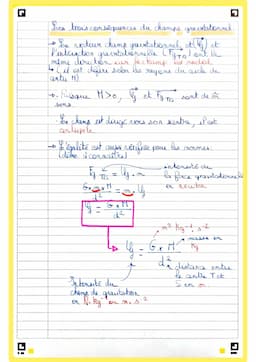 Les trois conséquences du champs gravitationnel
→ Les vecteurs champ gravitationnel et (Ug) et
l'interaction gravitationnelle (Fg m) ont la
même direction car le champ est radial
↳ (il est dirigé selon les rayons du cercle de
astre M)
→ Puisque M>0, Ug et Fg m sont de m
sens.
Le champ est dirigé vers son centre, il est
→ L'égalité est aussi vérifiée pour les normes:
(démo à connaître)
Fg = Ug · m
intensité de
la force gravitationnelle
en newton
G × m × M / d² = m × Ug
Ug = G × M / d²
m³ kg⁻¹ · s⁻²
Ug = G × M / d²
masse en
Kg
distance entre
le astre T et
S en m
Intensité du
champ de gravitation
en N·kg⁻¹ ou m·s⁻²